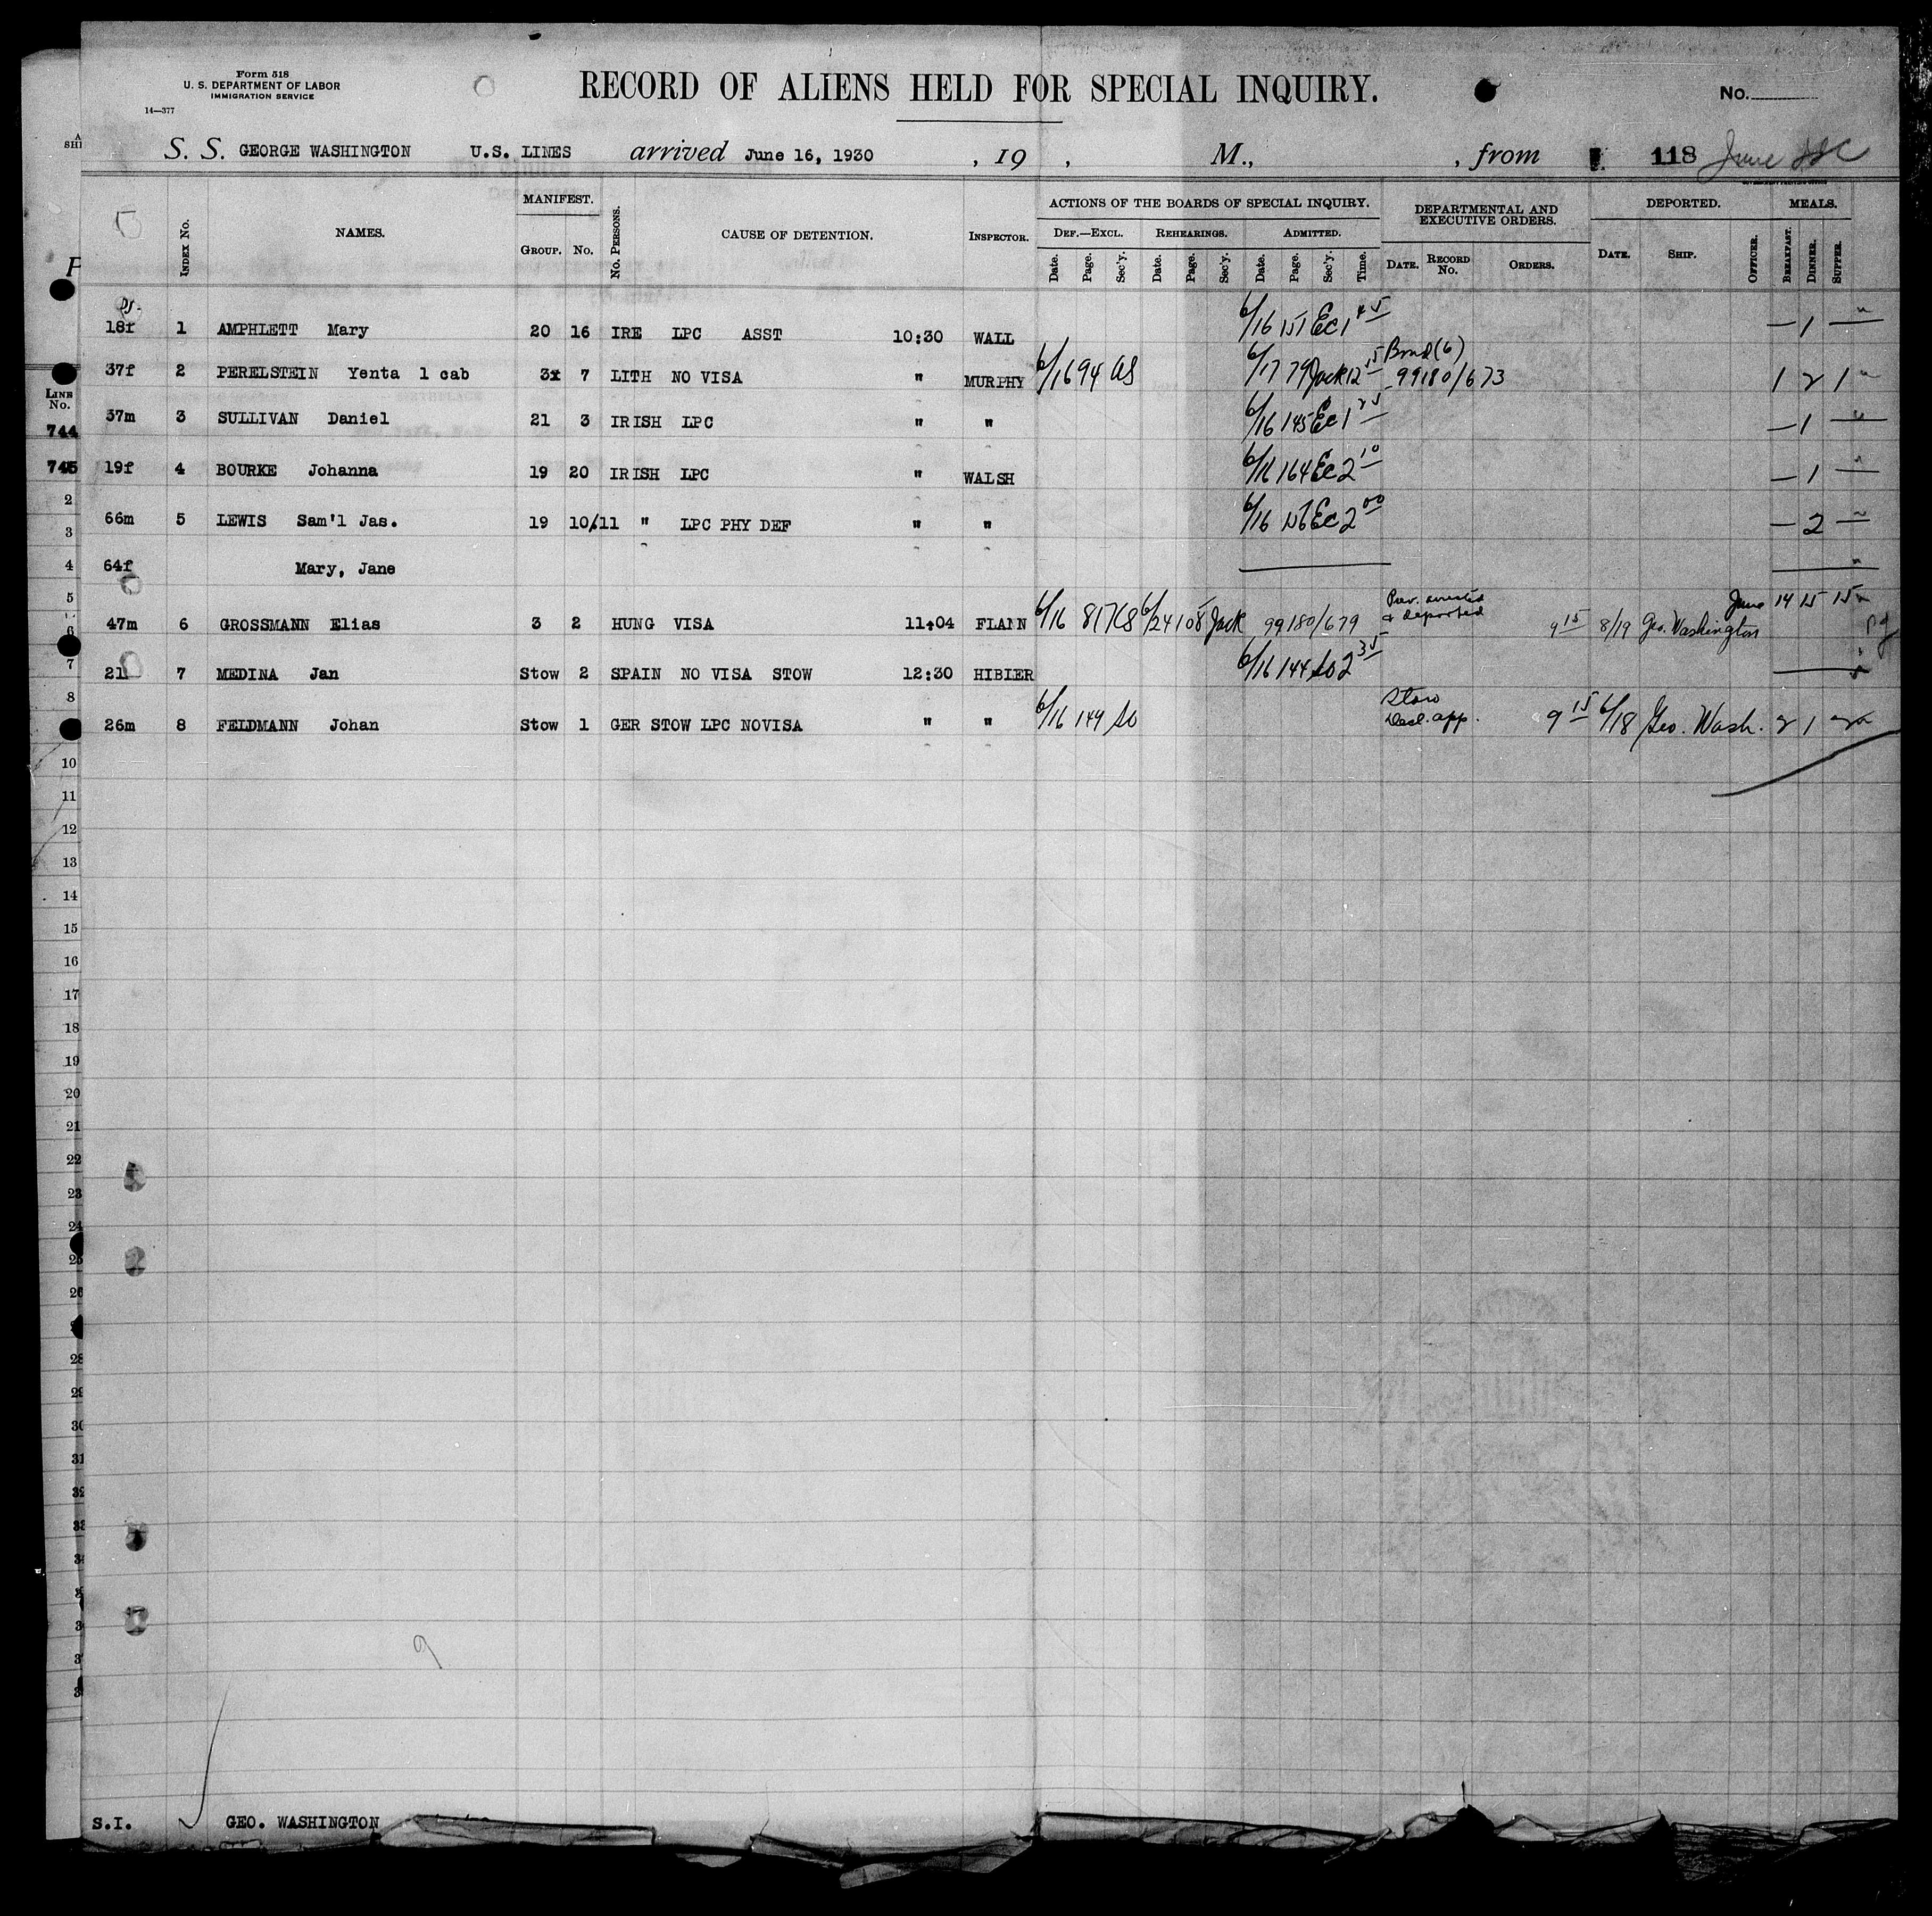 Form 518
U. S. DEPARTMENT OF LABOR
IMMIGRATION SERVICE
14—377
RECORD OF ALIENS HELD FOR SPECIAL INQUIRY.
No.
S. S. GEORGE WASHINGTON U.S. LINES arrived June 16, 1930 , 19 , M., , from 118 June
INDEX No. NAMES. MANIFEST. GROUP. No. No. PERSONS. CAUSE OF DETENTION. INSPECTOR. ACTIONS OF THE BOARDS OF SPECIAL INQUIRY. DEF.—EXCL. Date. Page. Sec'y. REHEARINGS. Date. Page. Sec'y. ADMITTED. Date. Page. Sec'y. Time. DEPARTMENTAL AND EXECUTIVE ORDERS. DATE. RECORD No. ORDERS. DEPORTED. DATE. SHIP. OFFICER. MEALS. BREAKFAST. DINNER. SUPPER.
18f 1 AMPHLETT Mary 20 16 IRE LPC ASST 10:30 WALL 6/16 151 Ec 1 45 — 1 —
37f 2 PERELSTEIN Yenta 1 cab 3x 7 LITH NO VISA " MURPHY 6/16 94 as 6/17 79 Jack 12 15 Bond (6) 99180/673 1 2 1
37m 3 SULLIVAN Daniel 21 3 IRISH LPC " " 6/16 145 Ec 1 25 — 1 —
19f 4 BOURKE Johanna 19 20 IRISH LPC " WALSH 6/16 164 Ec 2 10 — 1 —
66m 5 LEWIS Sam'l Jas. 19 10/11 " LPC PHY DEF " " 6/16 Ec 2 00 — 2 —
64f Mary, Jane
47m 6 GROSSMANN Elias 3 2 HUNG VISA 11:04 FLANN 6/16 81 KS 6/24 108 Jack 99180/679 Prev. arrested & deported 9 15 8/19 Geo. Washington June 14 15 15
21 7 MEDINA Jan Stow 2 SPAIN NO VISA STOW 12:30 HIBLER 6/16 144 so 2 35
26m 8 FELDMANN Johan Stow 1 GER STOW LPC NOVISA " " 6/16 149 so Stow Decl. app. 9 15 6/18 Geo. Wash. 2 1 2
LINE No.
744
745
2
3
4
5
6
7
8
10
11
12
13
14
15
16
17
18
19
20
21
22
23
24
25
26
28
29
30
31
32
33
S.I. GEO. WASHINGTON